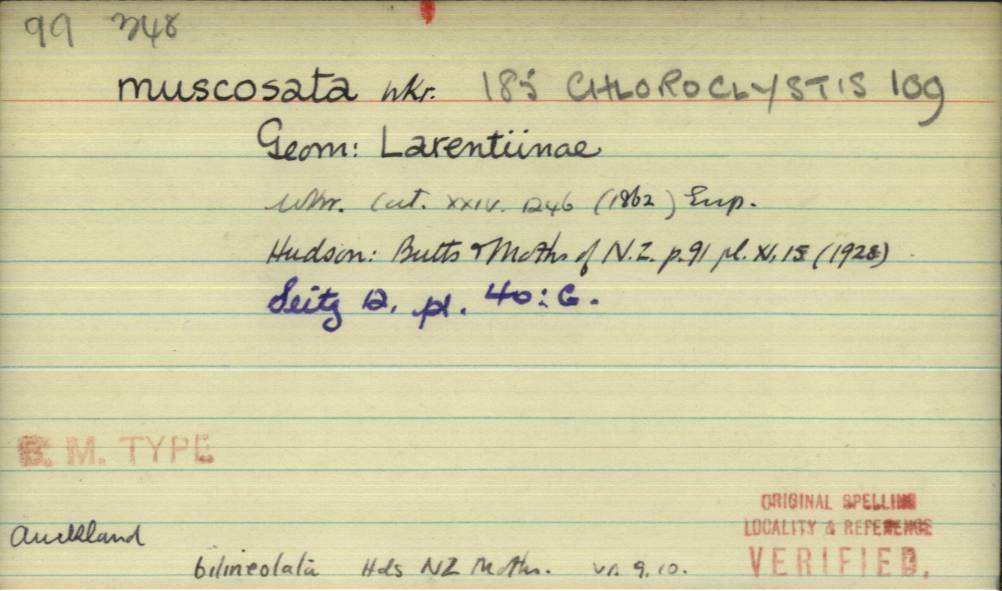 99 348
muscosata wkr. 185 CHLOROCLYSTIS 109
Geom: Larentiinae
Wkr. Cat. XXIV. 1246 (1862) Eup.
Hudson: Butts & Moths of N.Z. p.91 pl. XI, 15 (1928)
Seitz 12. pl. 40: G.
B. M. TYPE
ORIGINAL SPELLING
LOCALITY & REFERENCE
VERIFIED.
Auckland
bilineolata Hds NZ Moths. 9, 10.